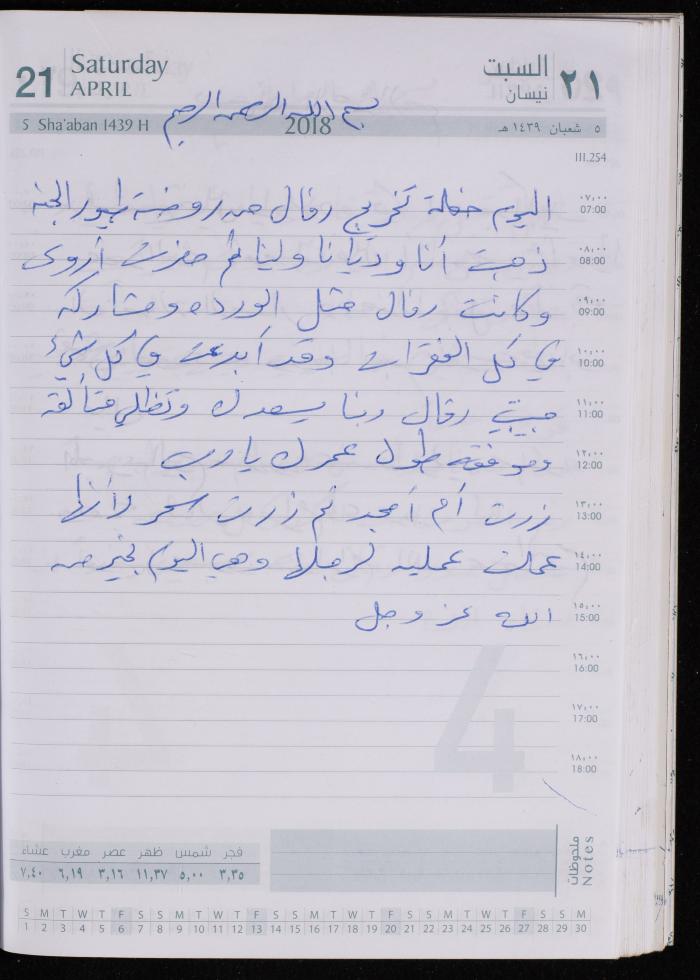 21 Saturday APRIL السبت نيسان ٢١
بسم الله الرحمن الرحيم
5 Sha'aban 1439 H 2018 ٥ شعبان ١٤٣٩ هـ
III.254
اليوم حفلة تخريج رفال من روضة طيور الجنه ٠٧:٠٠ 07:00
ذهبت أنا وديانا ولينا ثم حضرت أروى ٠٨:٠٠ 08:00
وكانت رفال مثل الورده ومشاركه ٠٩:٠٠ 09:00
في كل الفقرات وقد أبدعت في كل شيء ١٠:٠٠ 10:00
حبيبتي رفال ربنا يسعدك وتظلي متألقه ١١:٠٠ 11:00
وموفقه طول عمرك يا رب ١٢:٠٠ 12:00
زرت أم أمجد ثم زرت سحر لأنها ١٣:٠٠ 13:00
عملت عمليه لرجلها وهي اليوم بخير من ١٤:٠٠ 14:00
الله عز وجل ١٥:٠٠ 15:00
١٦:٠٠ 16:00
١٧:٠٠ 17:00
4
١٨:٠٠ 18:00
ملحوظات Notes
فجر شمس ظهر عصر مغرب عشاء
٣,٣٥ ٥,٠٠ ١١,٣٧ ٣,١٦ ٦,١٩ ٧,٤٠
S M T W T F S S M T W T F S S M T W T F S S M T W T F S S M
1 2 3 4 5 6 7 8 9 10 11 12 13 14 15 16 17 18 19 20 21 22 23 24 25 26 27 28 29 30